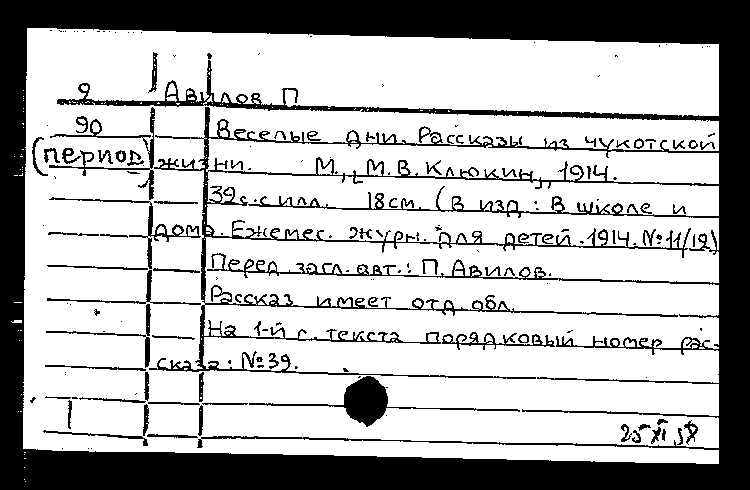 9 Авилов П
90 Веселые дни. Рассказы из чукотской
(период) жизни. М., [М.В. Клюкин], 1914.
39с. с илл. 18см. (В изд: В школе и
дома. Ежемес. журн. для детей. 1914. №11/12)
Перед загл. авт.: П. Авилов.
Рассказ имеет отд. обл.
На 1-й с. текста порядковый номер рас-
сказа: №39.
1
25 XI 58